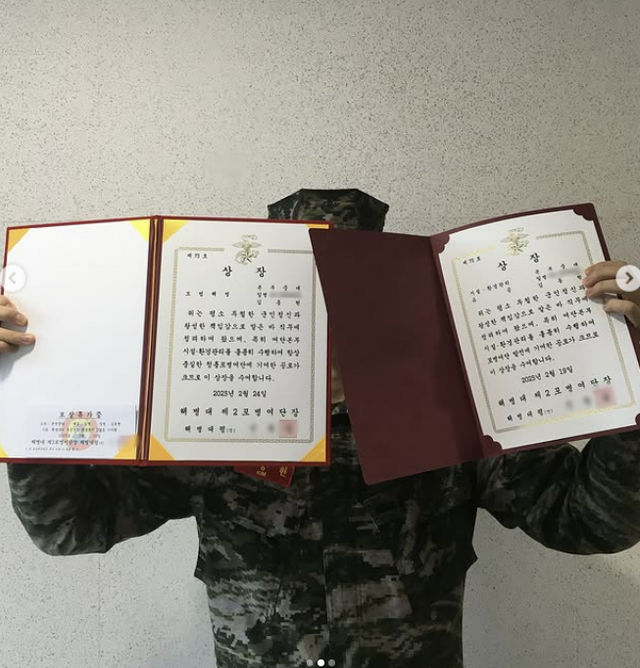 제 75 호
상 장
모범해병
본 부 중 대
일병
김
위는 평소 투철한 군인정신과
왕성한 책임감으로 맡은 바 직무에
정려하여 왔으며, 특히 여단본부
시설·환경관리를 훌륭히 수행하여 항상
충실한 정통포병여단에 기여한 공로가
크므로 이 상장을 수여합니다.
2025년 2월 24일
해병대 제2포병여단장
해병대령
포상휴가증
상 장
시설·환경관리
위는 평소 투철한 군인정신과
왕성한 책임감으로 맡은 바 직무에
정려하여 왔으며, 특히 여단본부
시설·환경관리를 훌륭히 수행하여
포병여단 발전에 기여한 공로가 크므로
이 상장을 수여합니다.
2025년 2월 19일
해병대 제2포병여단장
해병대령